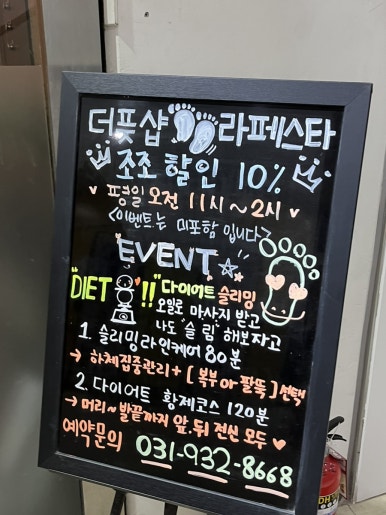 더풋샵 라페스타
조조 할인 10%
평일 오전 11시~2시
<이벤트는 미포함 입니다>
EVENT
"DIET"!! 다이어트 슬리밍
오일로 마사지 받고
나도 "슬림" 해보자고
1. 슬리밍라인케어 80분
→ 하체집중관리 + [복부 or 팔뚝] 선택
2. 다이어트 황제코스 120분
→ 머리~발끝까지 앞.뒤 전신 모두
예약문의 031-932-8668